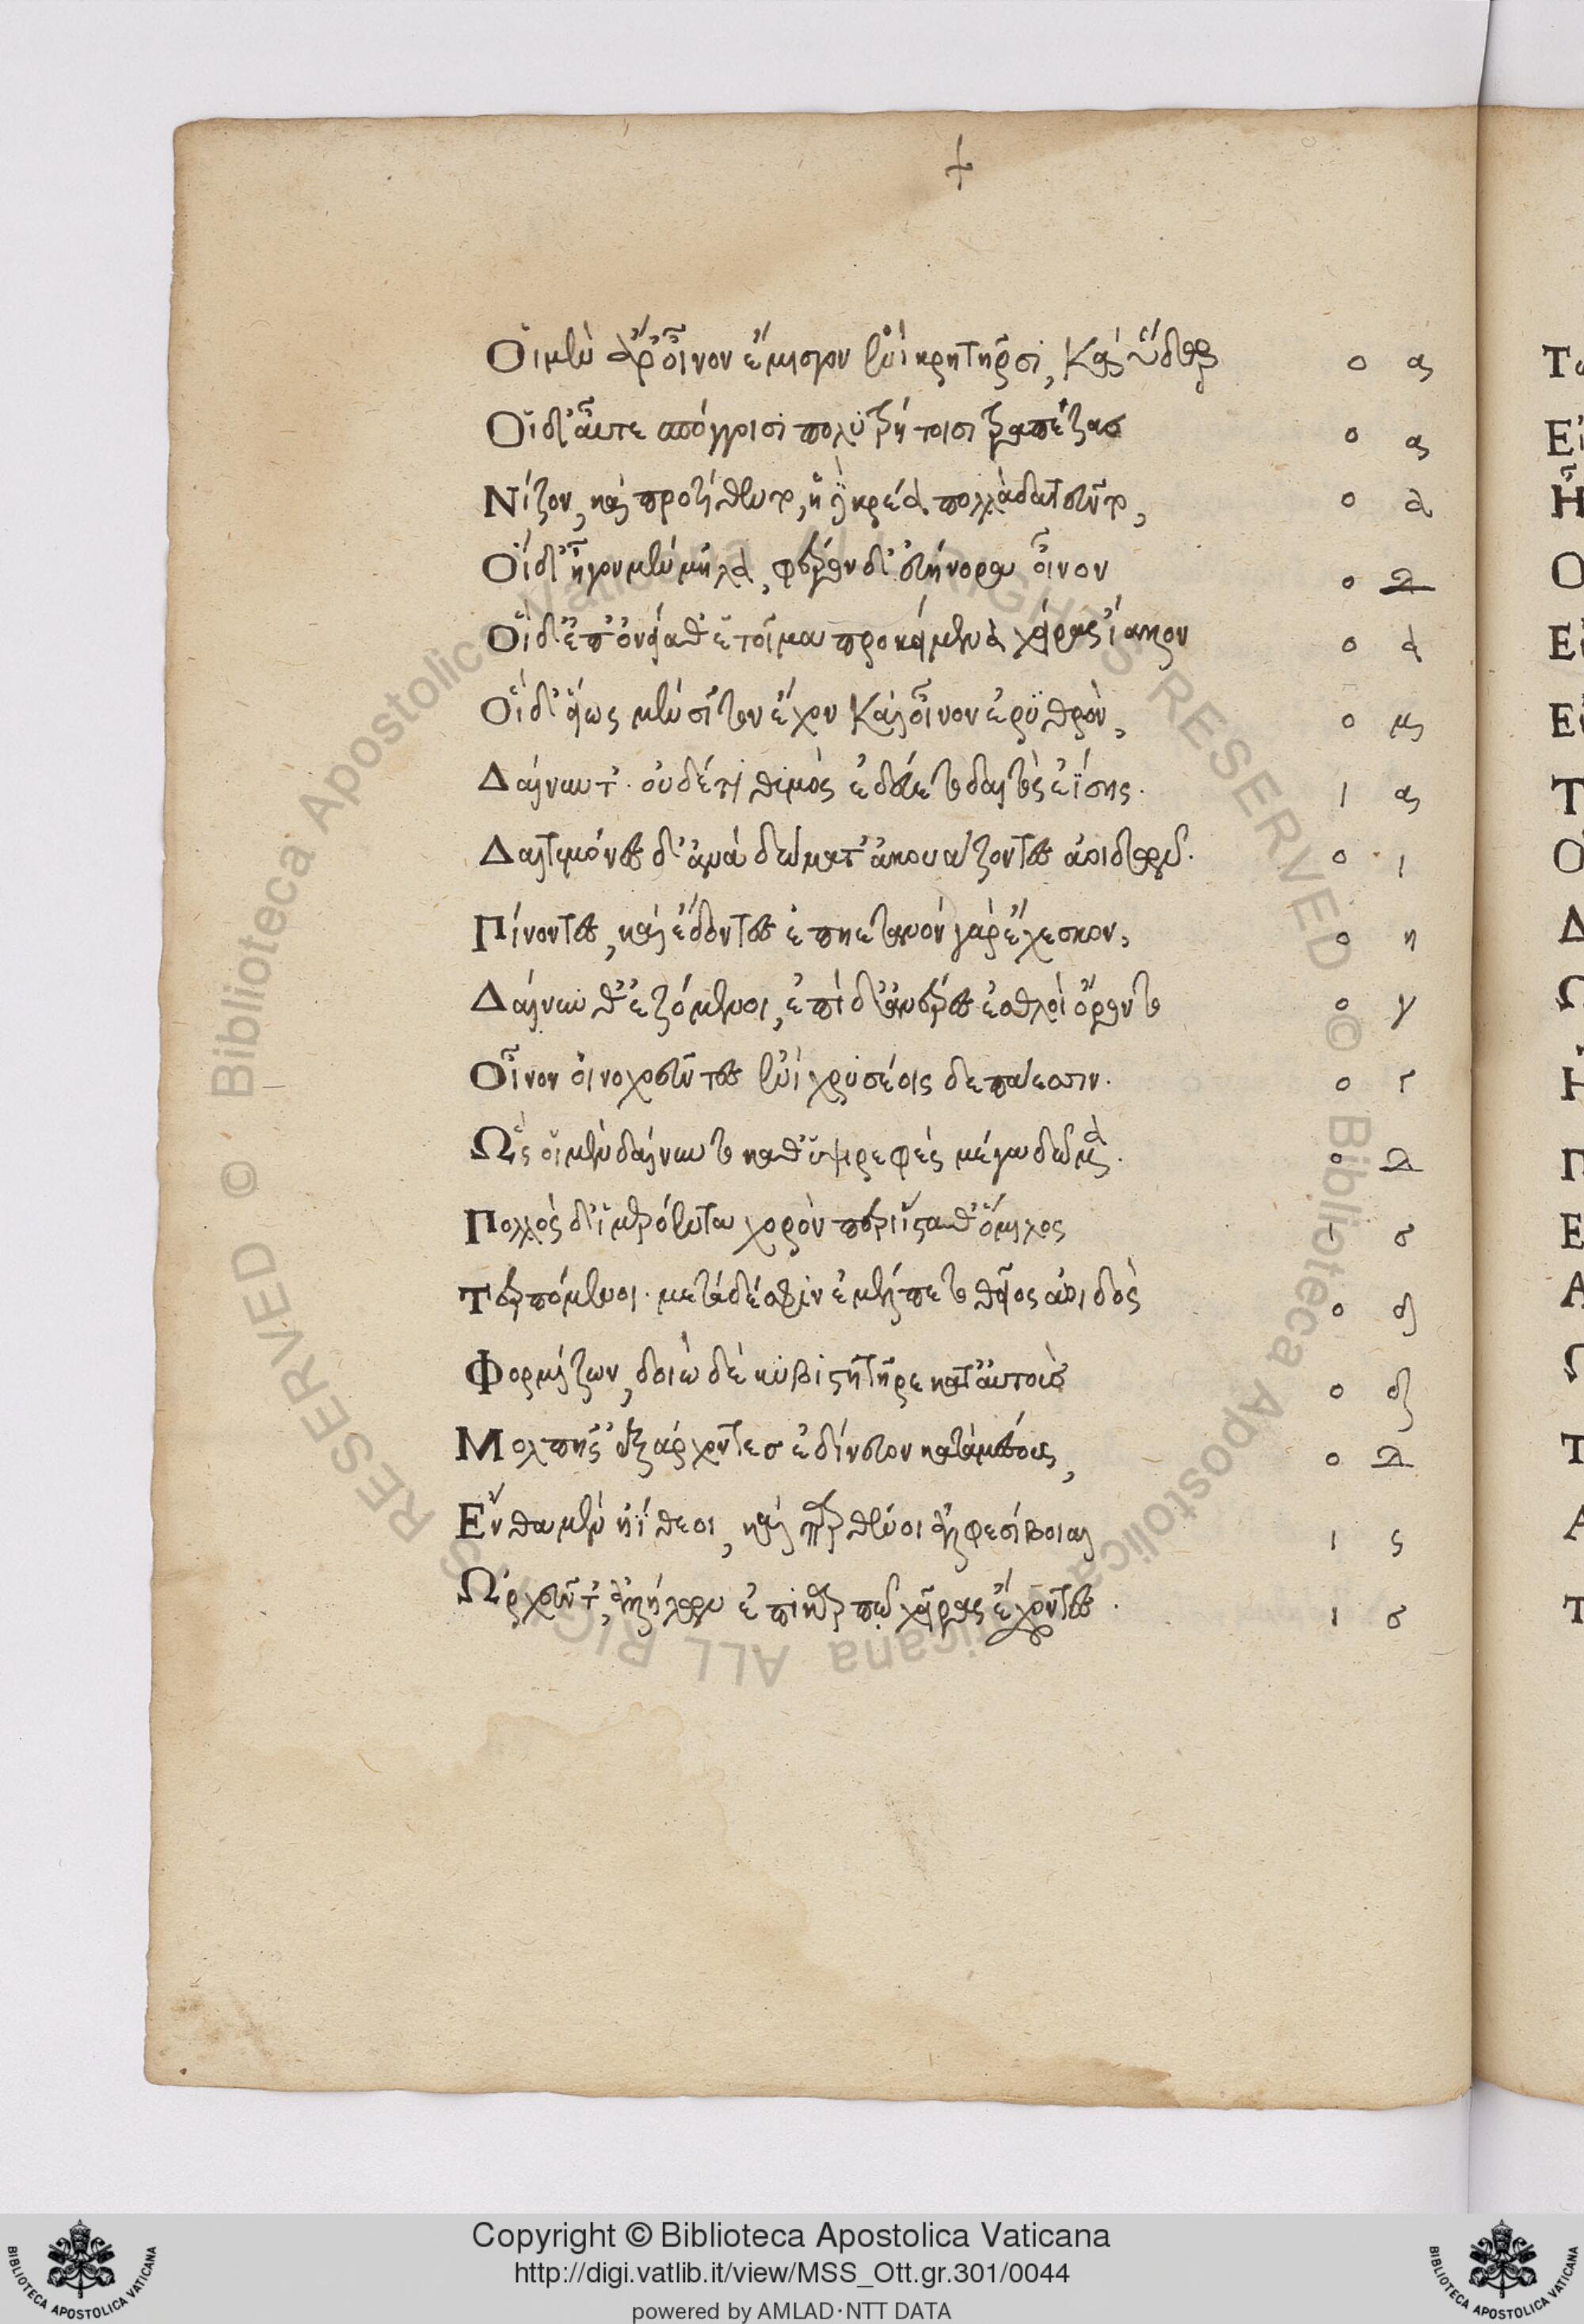 +
Οἱ μὲν ἄρ' οἶνον ἔμισγον ἐνὶ κρητῆρσι, Καὶ ὕδωρ ο α
Οἱ δ' αὖτε σπόγγοισι πολυτρήτοισι τραπέζας ο α
Νίζον, καὶ προτίθεντο, ἠδὲ κρέα πολλὰ δατεῦντο, ο α
Οἱ δ' ἦγον μὲν μῆλα, φέρον δ' εὐήνορα οἶνον ο
Οἱ δ' ἐπ' ὀνείαθ' ἑτοῖμα προκείμενα χεῖρας ἴαλλον ο α
Οἱ δ' εἵως μὲν σῖτον ἔχον Καὶ οἶνον ἐρυθρὸν, ο
Δαίνυντ'. οὐδέ τι θυμὸς ἐδεύετο δαιτὸς ἐΐσης. ι α
Δαιτυμόνες δ' ἀνὰ δώματ' ἀκουάζονται ἀοιδοῦ. ο ι
Πίνοντες, καὶ ἔδοντες ἐπηετανὸν γὰρ ἔχεσκον, ο η
Δαίνυνθ' ἑζόμενοι, ἐπὶ δ' ἀνέρες ἐσθλοὶ ὄροντο ο γ
Οἶνον οἰνοχοεῦντες ἐνὶ χρυσέοις δεπάεσσιν. ο γ
Ὣς οἱ μὲν δαίνυντο καθ' ὑψερεφὲς μέγα δῶμα. ο
Πολλὸς δ' ἱμερόεντα χορὸν περιίσταθ' ὅμιλος ι σ
Τερπόμενοι. μετὰ δέ σφιν ἐμέλπετο θεῖος ἀοιδὸς ο δ
Φορμίζων, δοιὼ δὲ κυβιστητῆρε κατ' αὐτοὺς ο δ
Μολπῆς ἐξάρχοντες ἐδίνευον κατὰ μέσους, ο
Ἔνθα μὲν ἠΐθεοι, καὶ παρθένοι ἀλφεσίβοιαι ι ς
Ὠρχεῦντ', ἀλλήλων ἐπὶ καρπῷ χεῖρας ἔχοντες. ι σ
Copyright © Biblioteca Apostolica Vaticana
http://digi.vatlib.it/view/MSS_Ott.gr.301/0044
powered by AMLAD·NTT DATA